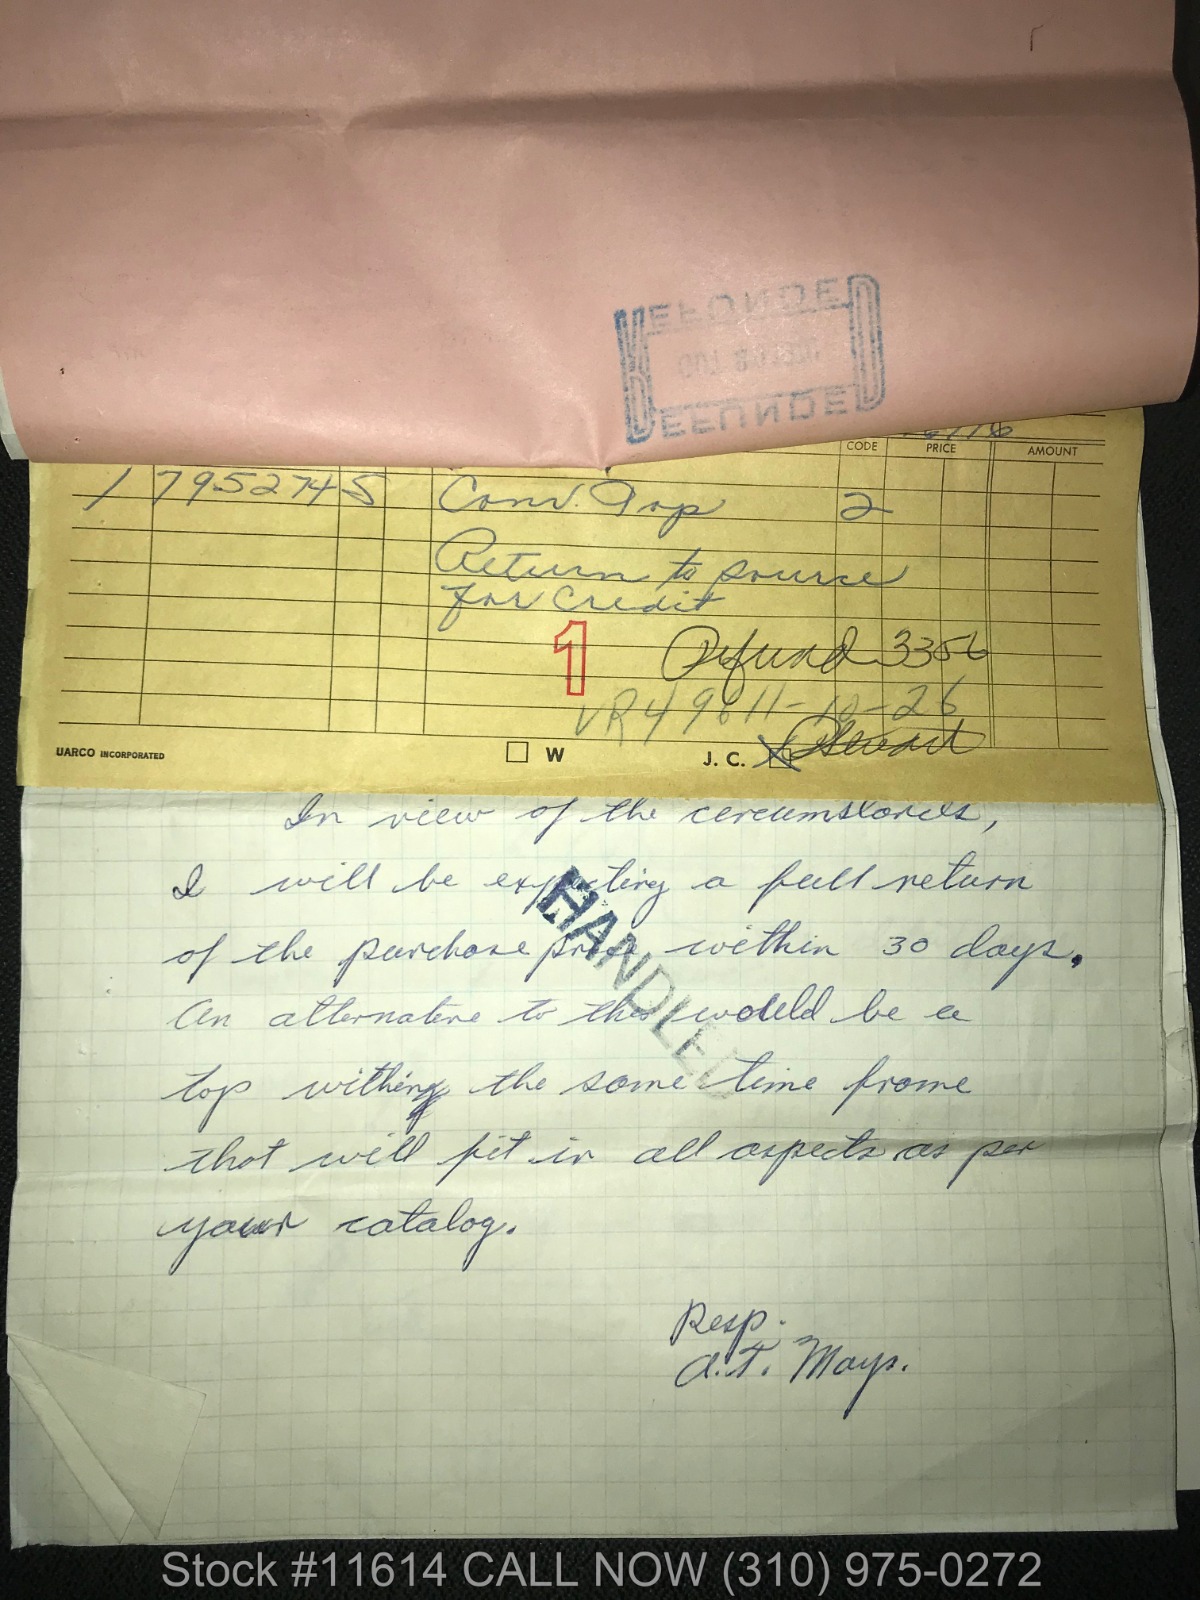 CODE PRICE AMOUNT
1 7952745 Conv. Top 2
Return to source
for credit
1
Refund 3356
VR49811-10-26
UARCO INCORPORATED
W
J. C.
In view of the cercumstances,
I will be expecting a full return
of the purchase price within 30 days.
An alternative to this would be a
top withing the same time frame
that will fit in all aspects as per
your catalog.
HANDLED
Resp.
A.T. Mays.
Stock #11614 CALL NOW (310) 975-0272